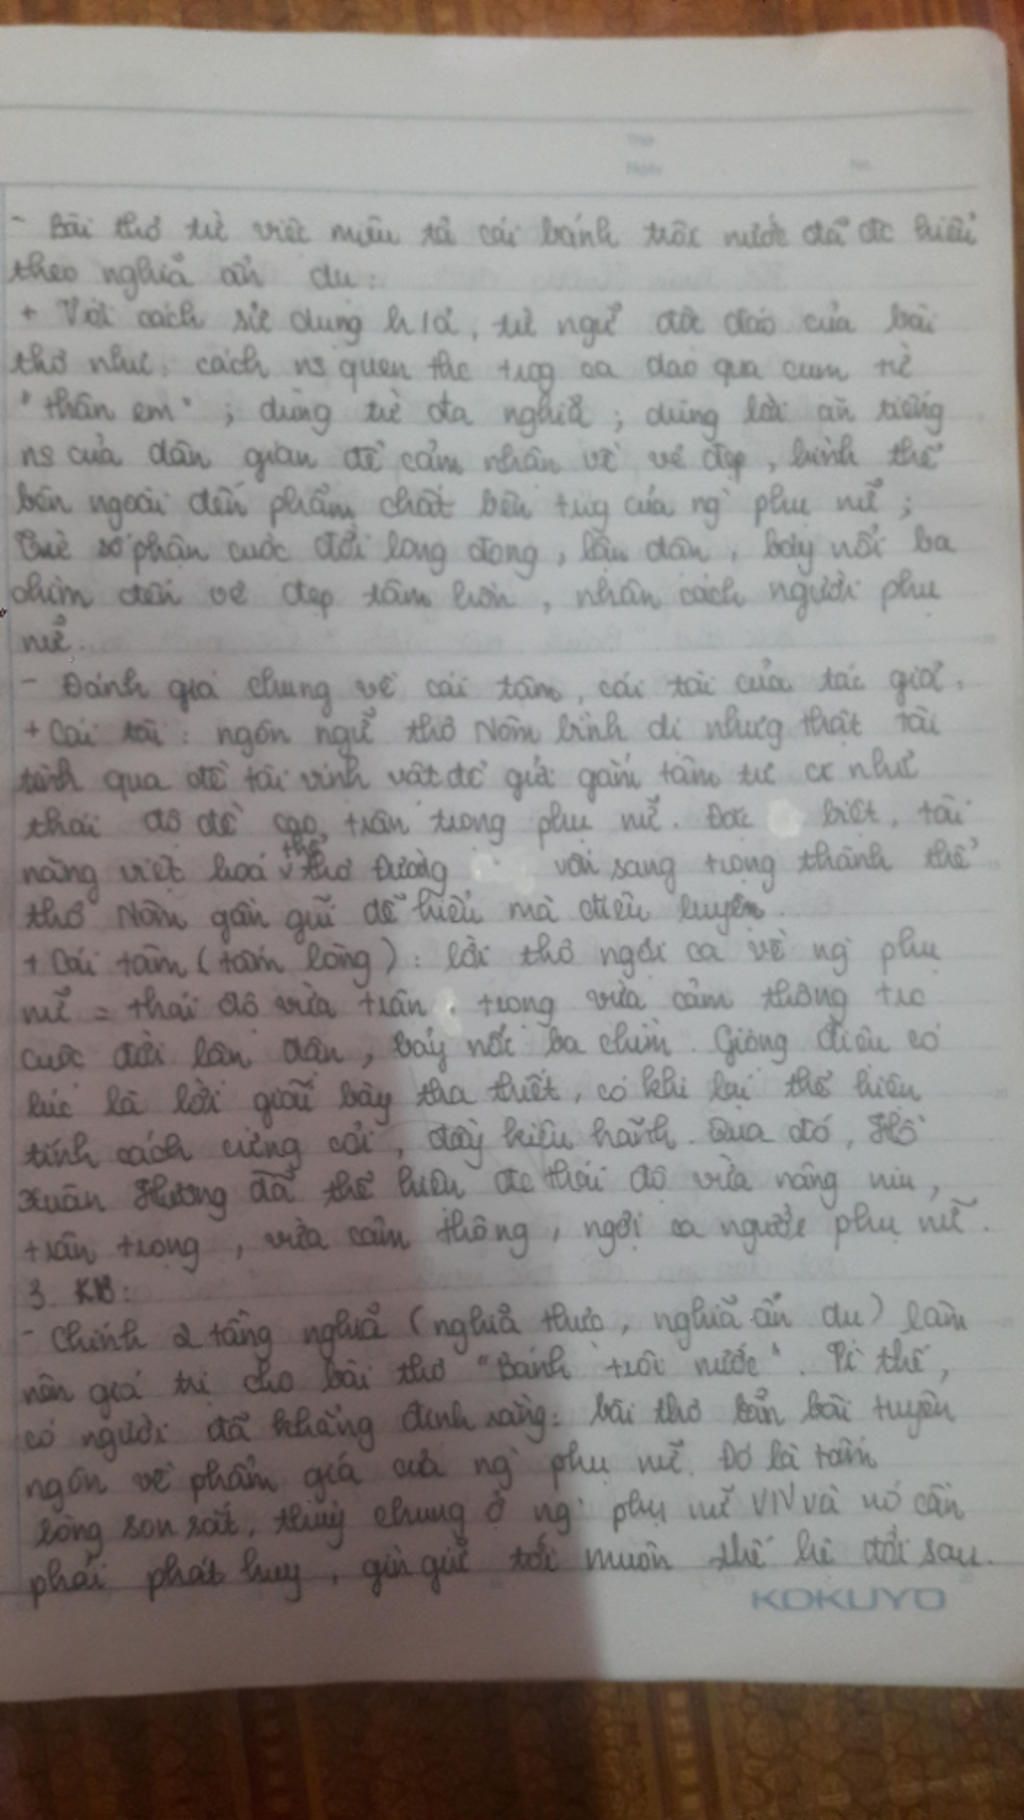 Thứ
Ngày No.
- Bài thơ từ việc miêu tả cái bánh trôi nước đã đc hiểu
theo nghĩa ẩn dụ:
+ Với cách sử dụng h/ả, từ ngữ độc đáo của bài
thơ như: cách ns quen thc trog ca dao qua cụm từ
"thân em"; dùng từ đa nghĩa; dùng lời ăn tiếng
ns của dân gian để cảm nhận về vẻ đẹp, hình thể
bên ngoài đến phẩm chất bên trog của ng phụ nữ;
số phận cuộc đời long đong, lận đận, bảy nổi ba
chìm đến vẻ đẹp tâm hồn, nhân cách người phụ
nữ.
- Đánh giá chung về cái tâm, cái tài của tác giả.
+ Cái tài: ngôn ngữ thơ Nôm bình dị nhưng thật tài
tình qua đề tài vịnh vật để gửi gắm tâm tư cx như
thái độ đề cao, trân trọng phụ nữ. Đặc biệt, tài
năng việt hoá thể thơ Đường vốn sang trọng thành thể
thơ Nôm gần gũi dễ hiểu mà điêu luyện.
+ Cái tâm (tấm lòng): lời thơ ngợi ca về ng phụ
nữ = thái độ vừa trân trọng vừa cảm thông trc
cuộc đời lận đận, bảy nổi ba chìm. Giọng điệu có
lúc là lời giãi bày tha thiết, có khi lại thể hiện
tính cách cứng cỏi, đầy kiêu hãnh. Qua đó, Hồ
Xuân Hương đã thể hiện đc thái độ vừa nâng niu,
trân trọng, vừa cảm thông, ngợi ca người phụ nữ.
3. KB:
- Chính 2 tầng nghĩa (nghĩa thực, nghĩa ẩn dụ) làm
nên giá trị cho bài thơ "Bánh trôi nước". Vì thế,
có người đã khẳng định rằng: bài thơ bản tuyên
ngôn về phẩm giá của ng phụ nữ. Đó là tấm
lòng son sắt, thuỷ chung ở ng phụ nữ VN và nó cần
phải phát huy, gìn giữ tới muôn thế hệ đời sau.
KOKUYO